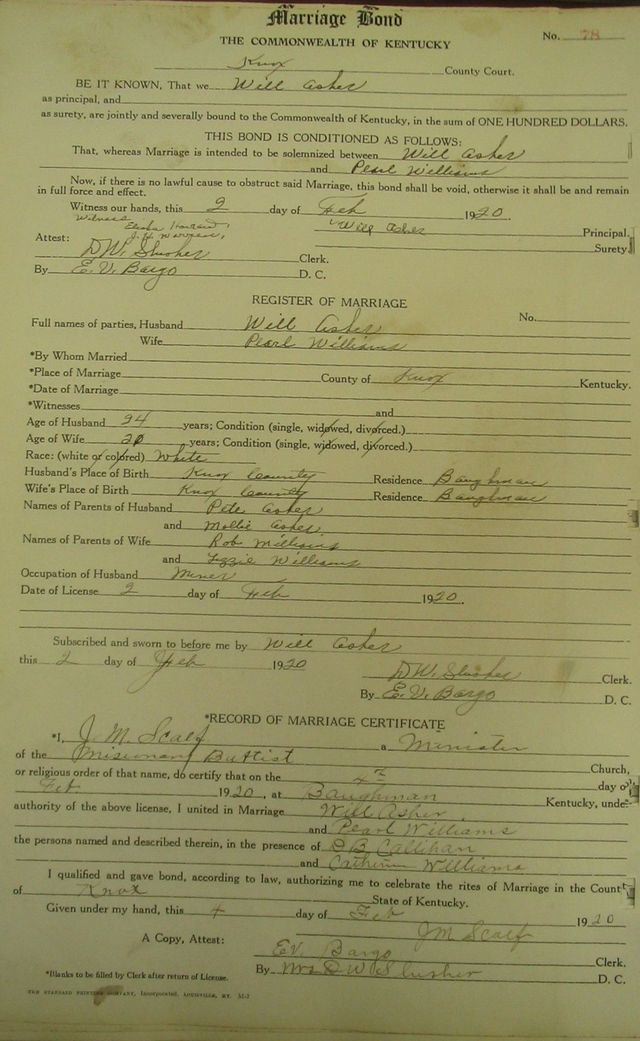 Marriage Bond
No. 78
THE COMMONWEALTH OF KENTUCKY
Knox County Court.
BE IT KNOWN, That we Will Asher
as principal, and
as surety, are jointly and severally bound to the Commonwealth of Kentucky, in the sum of ONE HUNDRED DOLLARS.
THIS BOND IS CONDITIONED AS FOLLOWS:
That, whereas Marriage is intended to be solemnized between Will Asher
and Pearl Williams
Now, if there is no lawful cause to obstruct said Marriage, this bond shall be void, otherwise it shall be and remain
in full force and effect.
Witness our hands, this 2 day of Feb 1920.
Witness
Elisha
J. H.
Will Asher Principal.
Attest: Surety.
D. W. Slusher Clerk.
By E. V. Bargo D. C.
REGISTER OF MARRIAGE
No.
Full names of parties, Husband Will Asher
Wife Pearl Williams
*By Whom Married
*Place of Marriage County of Knox Kentucky.
*Date of Marriage
*Witnesses and
Age of Husband 24 years; Condition (single, widowed, divorced.)
Age of Wife 20 years; Condition (single, widowed, divorced.)
Race: (white or colored) White
Husband's Place of Birth Knox County Residence Baughman
Wife's Place of Birth Knox County Residence Baughman
Names of Parents of Husband Pete Asher
and Mollie Asher
Names of Parents of Wife Rob Williams
and Lizzie Williams
Occupation of Husband Miner
Date of License 2 day of Feb 1920.
Subscribed and sworn to before me by Will Asher
this 2 day of Feb 1920
D. W. Slusher Clerk.
By E. V. Bargo D. C.
*RECORD OF MARRIAGE CERTIFICATE
*I, J. M. Scalf a Minister
of the Misionary Babtist Church,
or religious order of that name, do certify that on the 4th day of
Feb 1920, at Baughman Kentucky, under
authority of the above license, I united in Marriage Will Asher
and Pearl Williams
the persons named and described therein, in the presence of C B Callihan
and Catherine Williams
I qualified and gave bond, according to law, authorizing me to celebrate the rites of Marriage in the Count
of Knox State of Kentucky.
Given under my hand, this 4 day of Feb 1920
J M Scalf
A Copy, Attest: E. V. Bargo Clerk.
By Mrs D W Slusher D. C.
*Blanks to be filled by Clerk after return of License.
THE STANDARD PRINTING COMPANY, Incorporated, LOUISVILLE, KY.